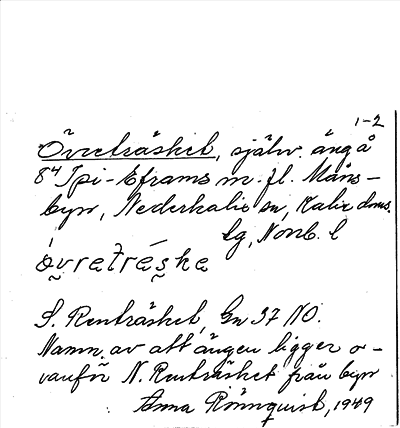 1-2
Övreträsket, själv. äng å
8⁴¹ Tpi-Eframs m.fl. Måns-
byn, Nederkalix sn, Kalix doms.
lg, Norrb. l
övreträske
S. Renträsket, Gn 37 NO.
Namn. av att ängen ligger o-
vanför N. Renträsket från byn
Anna Rönnquist, 1949